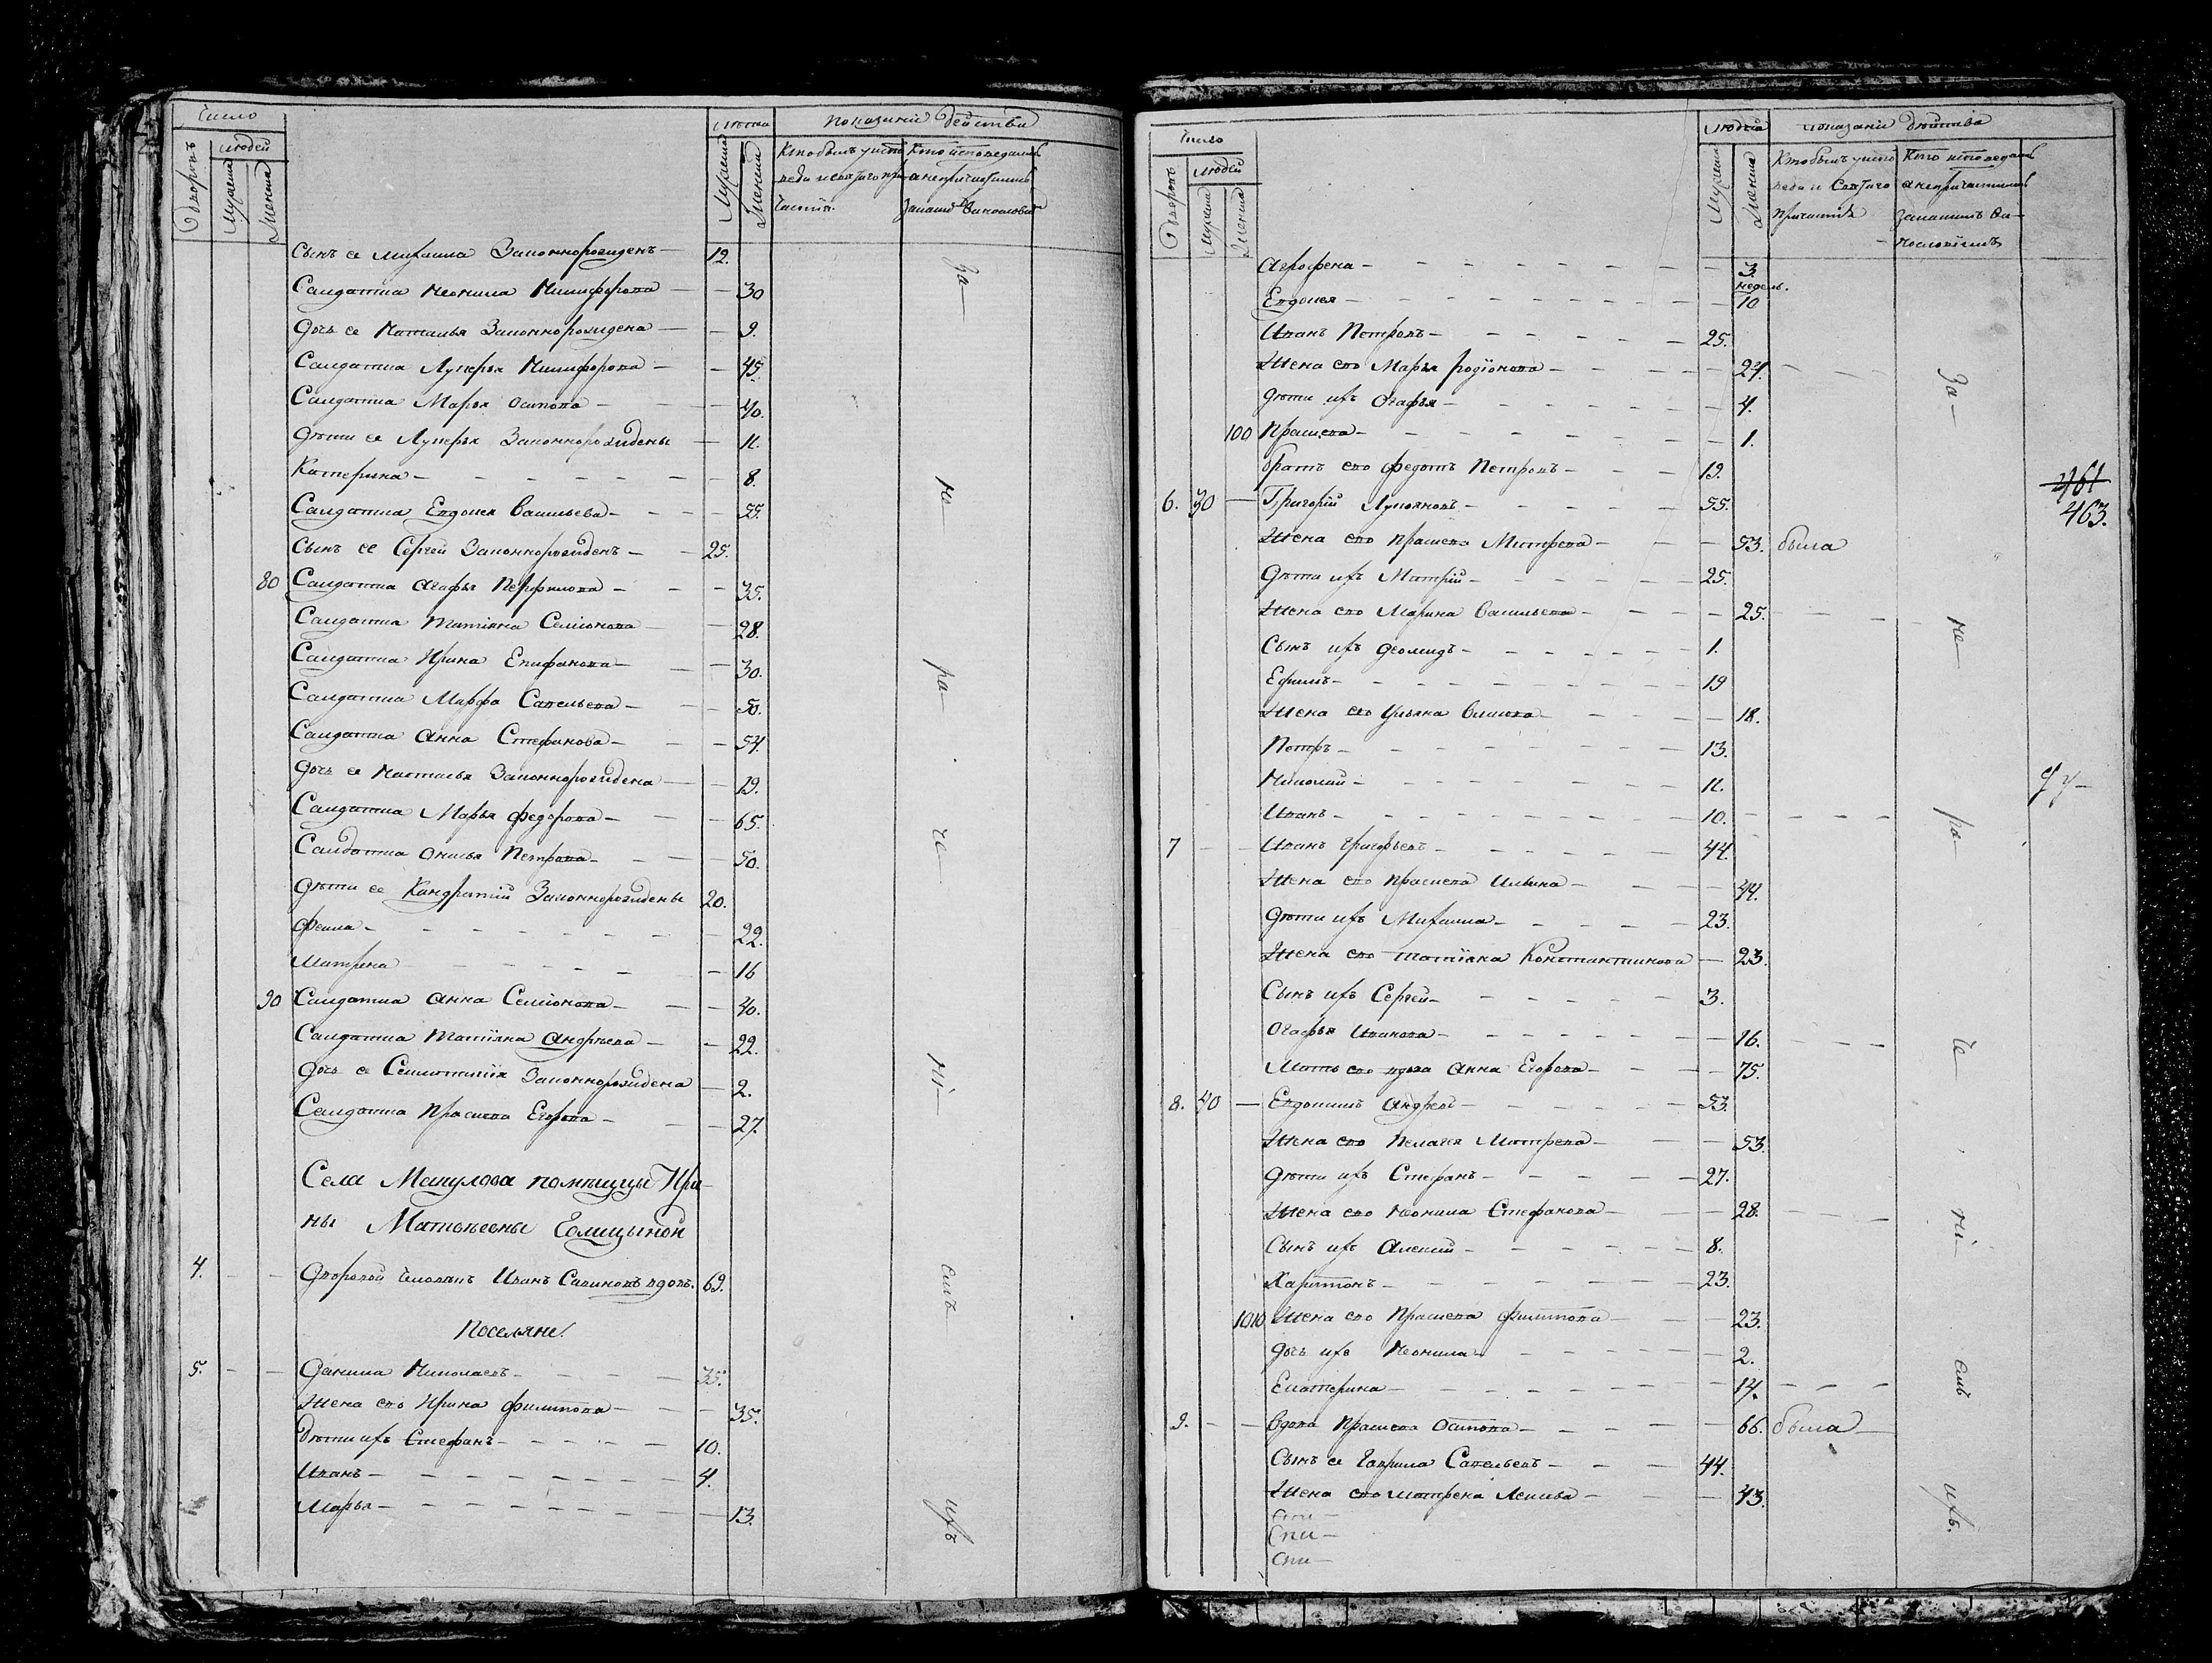 Число
людей
Дворовъ
Мужеска
Женска
Лѣта
Мужеска
Женска
Показаніи действа
Кто былъ у исповеди и святаго причастія
Кто исповедался а не причастился
За нерачениемъ ихъ
Сынъ ее Михаила Законнорожденъ — 12.
Салдатка Неонила Никифорова — 30
Дочь ее Наталья Законнорождена — 9.
Салдатка Лукерья Никифорова — 45.
Салдатка Марья Осипова — 40.
Дѣти ее Лукерья Законнорождены — 11.
Катерина — 8.
Салдатка Евдокея Васильева — 55.
Сынъ ее Сергей Законнорожденъ — 25.
80 Салдатка Агафья Перфилова — 35.
Салдатка Татіяна Семіонова — 28.
Салдатка Ирина Епифанова — 30.
Салдатка Марфа Савельева — 50.
Салдатка Анна Стефанова — 54.
Дочь ее Наталья Законнорождена — 19.
Салдатка Марья Федорова — 65.
Салдатка Окилья Петрова — 50.
Дѣти ее Кандратій Законнорождены 20.
Фекла — 22.
Матрена — 16
90 Салдатка Анна Семіонова — 40.
Салдатка Татіяна Андрѣева — 22.
Дочь ее Законнорождена — 2.
Салдатка Праскева Егорова — 27.
Села Манулова помѣщицы Ири-
ны Матвѣевны Голицыной
4. — — Дворовой Человѣкъ Иванъ Савиновъ вдовъ. 69.
Поселяне.
5. — — Данила Николаевъ — 35.
Жена его Ирина Филипова — 35.
Дѣти ихъ Стефанъ — 10.
Иванъ — 4.
Марья — 13.
Число
людей
Дворовъ
Мужеска
Женска
людей
Мужеска
Женска
показани действа
Кто былъ у исповеди и Святаго Причастія
Кто исповедался а не причастился
За нерачениемъ ихъ.
Агрофена — 3.
недель.
Евдокея — 10
Иванъ Петровъ — 25.
Жена его Марья Родіонова — 24.
Дѣти ихъ Огафья — 4.
100 Праскева — 1.
Братъ его Федотъ Петровъ — 19.
461
6. 30 — Григорій Лукояновъ — 55.
463.
Жена его Праскева Митрева — 53. была
Дѣти ихъ Матвій — 25.
Жена его Марина Васильева — 25.
Сынъ ихъ Деомидъ — 1.
Ефимъ — 19
Жена его Ульяна — 18.
Петръ — 13.
Николай — 11.
Иванъ — 10.
7 — — Иванъ Григорьевъ — 44.
Жена его Праскева Ильина — 44.
Дѣти ихъ Михаила — 23.
Жена его Татіяна Константинова — 23.
Сынъ ихъ Сергей — 3.
Огафья Иванова — 16.
Мать его вдова Анна Егорова — 75.
8. 40 — Евдокимъ Андреевъ — 53.
Жена его Пелагея Митрева — 53.
Дѣти ихъ Стефанъ — 27.
Жена его Неонила Стефанова — 28.
Сынъ ихъ Алексей — 8.
Харитонъ — 23.
1010 Жена его Праскева Филипова — 23.
Дочь ихъ Неонила — 2.
Екатерина — 14.
9. — — Вдова Праскева Осипова — 66. была
Сынъ ее Гаврила Савельевъ — 44.
Жена его Матрена — 43.